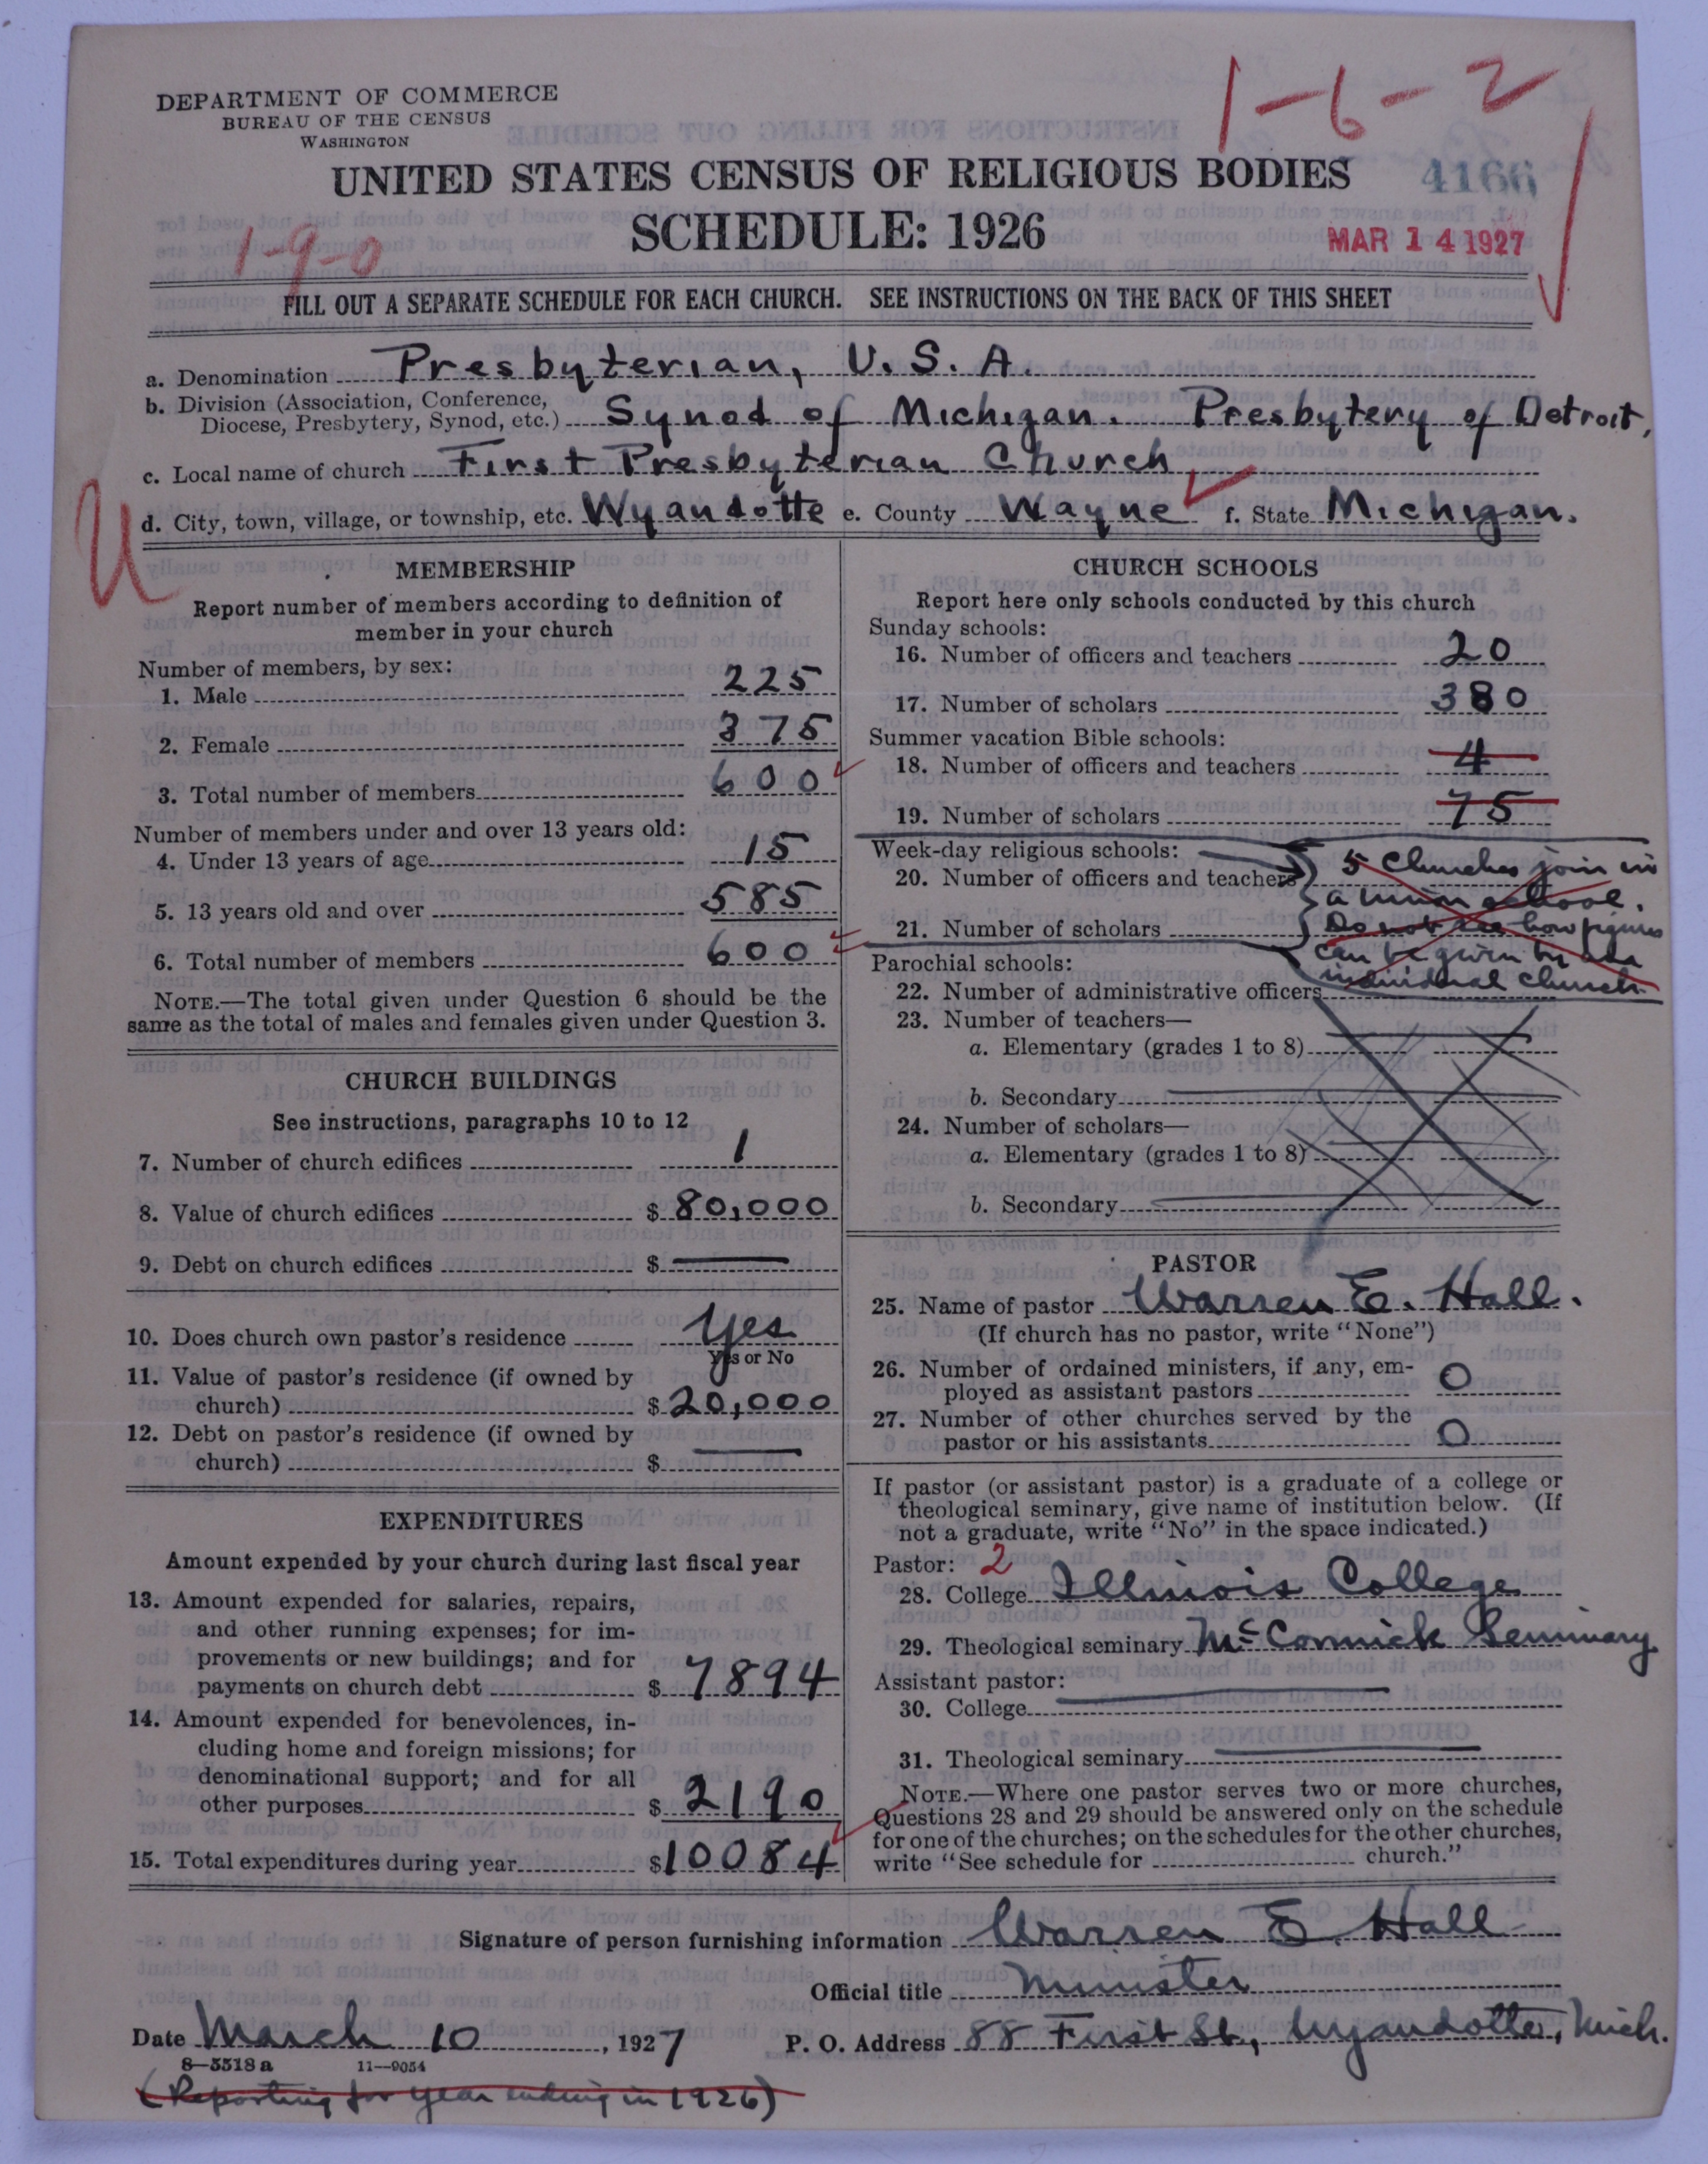 1-6-2
DEPARTMENT OF COMMERCE
BUREAU OF THE CENSUS
WASHINGTON
UNITED STATES CENSUS OF RELIGIOUS BODIES
4166
SCHEDULE: 1926
MAR 14 1927
1-9-0
FILL OUT A SEPARATE SCHEDULE FOR EACH CHURCH. SEE INSTRUCTIONS ON THE BACK OF THIS SHEET
a. Denomination Presbyterian, U.S.A.
b. Division (Association, Conference, Diocese, Presbytery, Synod, etc.) Synod of Michigan. Presbytery of Detroit,
c. Local name of church First Presbyterian Church
d. City, town, village, or township, etc. Wyandotte e. County Wayne f. State Michigan.
U
MEMBERSHIP
Report number of members according to definition of
member in your church
Number of members, by sex:
1. Male 225
2. Female 375
3. Total number of members 600
Number of members under and over 13 years old:
4. Under 13 years of age 15
5. 13 years old and over 585
6. Total number of members 600
NOTE.—The total given under Question 6 should be the
same as the total of males and females given under Question 3.
CHURCH BUILDINGS
See instructions, paragraphs 10 to 12
7. Number of church edifices 1
8. Value of church edifices $ 80,000
9. Debt on church edifices $ —
10. Does church own pastor's residence Yes
Yes or No
11. Value of pastor's residence (if owned by
church) $ 20,000
12. Debt on pastor's residence (if owned by
church) $ —
EXPENDITURES
Amount expended by your church during last fiscal year
13. Amount expended for salaries, repairs,
and other running expenses; for im-
provements or new buildings; and for
payments on church debt $ 7894
14. Amount expended for benevolences, in-
cluding home and foreign missions; for
denominational support; and for all
other purposes $ 2190
15. Total expenditures during year $ 10084
CHURCH SCHOOLS
Report here only schools conducted by this church
Sunday schools:
16. Number of officers and teachers 20
17. Number of scholars 380
Summer vacation Bible schools:
18. Number of officers and teachers 4
19. Number of scholars 75
Week-day religious schools:
20. Number of officers and teachers
21. Number of scholars
5 Churches join in
a union school.
Do not see how figures
can be given by an
individual church.
Parochial schools:
22. Number of administrative officers
23. Number of teachers—
a. Elementary (grades 1 to 8)
b. Secondary
24. Number of scholars—
a. Elementary (grades 1 to 8)
b. Secondary
PASTOR
25. Name of pastor Warren E. Hall.
(If church has no pastor, write "None")
26. Number of ordained ministers, if any, em-
ployed as assistant pastors 0
27. Number of other churches served by the
pastor or his assistants 0
If pastor (or assistant pastor) is a graduate of a college or
theological seminary, give name of institution below. (If
not a graduate, write "No" in the space indicated.)
Pastor: 2
28. College Illinois College
29. Theological seminary McCormick Seminary
Assistant pastor:
30. College
31. Theological seminary
NOTE.—Where one pastor serves two or more churches,
Questions 28 and 29 should be answered only on the schedule
for one of the churches; on the schedules for the other churches,
write "See schedule for church."
Signature of person furnishing information Warren E. Hall
Official title Minister
Date March 10, 1927 P. O. Address 88 First St., Wyandotte, Mich.
8—5518 a 11—9054
(Reporting for year ending in 1926)